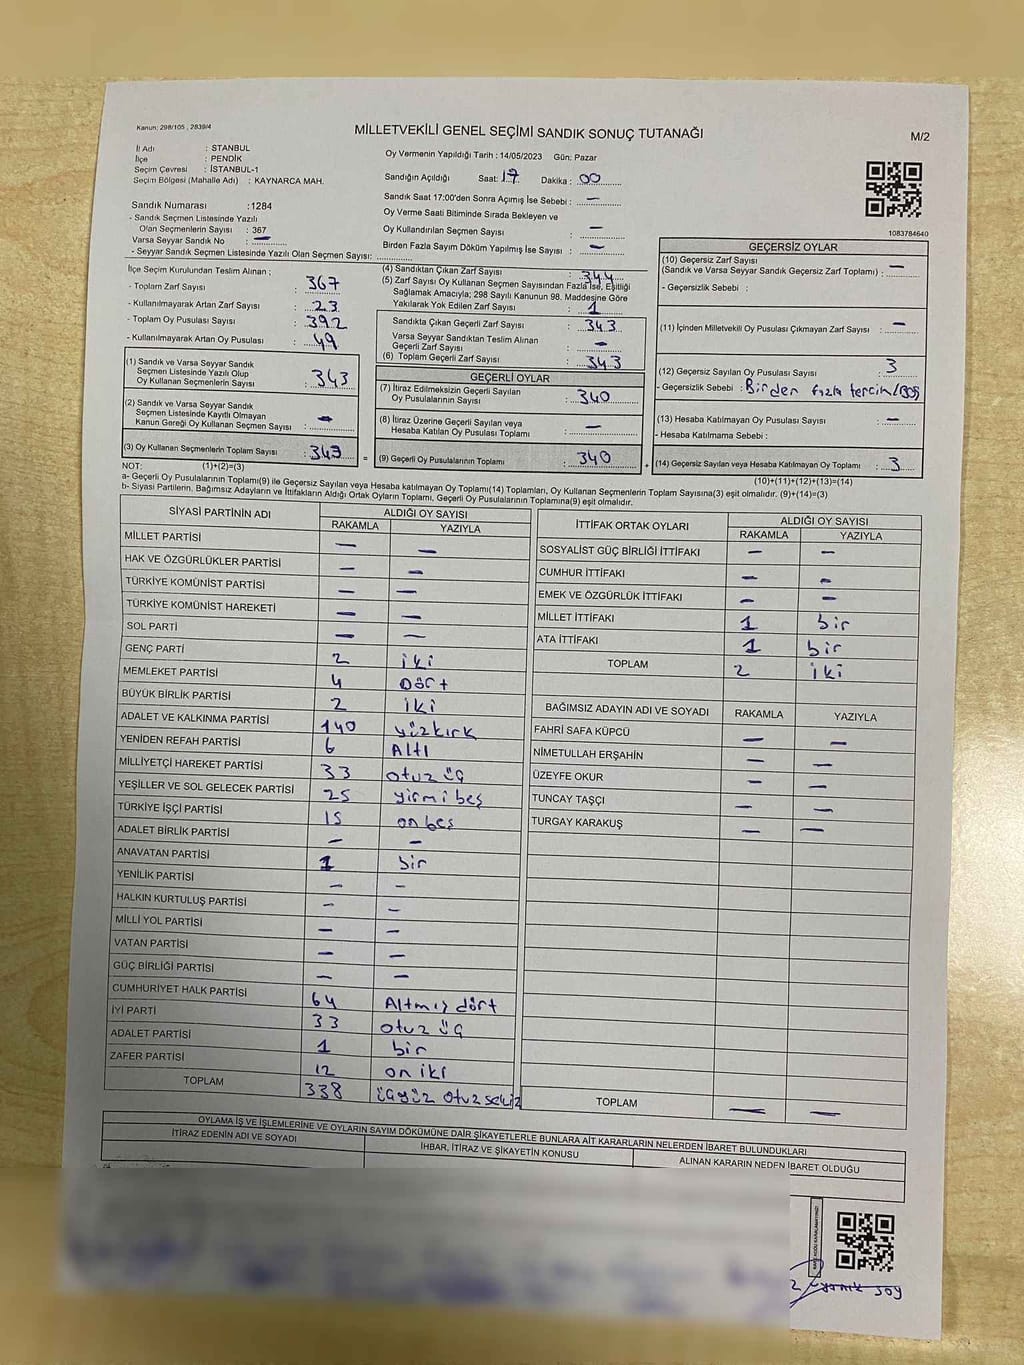 Kanun: 298/105 , 2839/4
MİLLETVEKİLİ GENEL SEÇİMİ SANDIK SONUÇ TUTANAĞI
M/2
İl Adı : STANBUL
İlçe : PENDİK
Seçim Çevresi : İSTANBUL-1
Seçim Bölgesi (Mahalle Adı) : KAYNARCA MAH.
Sandık Numarası :1284
- Sandık Seçmen Listesinde Yazılı
Olan Seçmenlerin Sayısı : 367
Varsa Seyyar Sandık No : —
- Seyyar Sandık Seçmen Listesinde Yazılı Olan Seçmen Sayısı:
Oy Vermenin Yapıldığı Tarih : 14/05/2023 Gün: Pazar
Sandığın Açıldığı Saat: 17 Dakika : 00
Sandık Saat 17:00'den Sonra Açımış İse Sebebi : —
Oy Verme Saati Bitiminde Sırada Bekleyen ve
Oy Kullandırılan Seçmen Sayısı : —
Birden Fazla Sayım Döküm Yapılmış İse Sayısı : —
1083784640
İlçe Seçim Kurulundan Teslim Alınan ;
- Toplam Zarf Sayısı : 367
- Kullanılmayarak Artan Zarf Sayısı : 23
- Toplam Oy Pusulası Sayısı : 392
- Kullanılmayarak Artan Oy Pusulası : 49
(1) Sandık ve Varsa Seyyar Sandık
Seçmen Listesinde Yazılı Olup
Oy Kullanan Seçmenlerin Sayısı : 343
(2) Sandık ve Varsa Seyyar Sandık
Seçmen Listesinde Kayıtlı Olmayan
Kanun Gereği Oy Kullanan Seçmen Sayısı : —
(3) Oy Kullanan Seçmenlerin Toplam Sayısı : 343
(4) Sandıktan Çıkan Zarf Sayısı : 344
(5) Zarf Sayısı Oy Kullanan Seçmen Sayısından Fazla İse, Eşitliği
Sağlamak Amacıyla; 298 Sayılı Kanunun 98. Maddesine Göre
Yakılarak Yok Edilen Zarf Sayısı : 1
Sandıkta Çıkan Geçerli Zarf Sayısı : 343
Varsa Seyyar Sandıktan Teslim Alınan
Geçerli Zarf Sayısı : —
(6) Toplam Geçerli Zarf Sayısı : 343
GEÇERLİ OYLAR
(7) İtiraz Edilmeksizin Geçerli Sayılan
Oy Pusulalarının Sayısı : 340
(8) İtiraz Üzerine Geçerli Sayılan veya
Hesaba Katılan Oy Pusulası Toplamı : —
= (9) Geçerli Oy Pusulalarının Toplamı : 340
GEÇERSİZ OYLAR
(10) Geçersiz Zarf Sayısı
(Sandık ve Varsa Seyyar Sandık Geçersiz Zarf Toplamı) : —
- Geçersizlik Sebebi :
(11) İçinden Milletvekili Oy Pusulası Çıkmayan Zarf Sayısı : —
(12) Geçersiz Sayılan Oy Pusulası Sayısı : 3
- Geçersizlik Sebebi : Birden fazla tercih/BOŞ
(13) Hesaba Katılmayan Oy Pusulası Sayısı : —
- Hesaba Katılmama Sebebi :
+ (14) Geçersiz Sayılan veya Hesaba Katılmayan Oy Toplamı : 3
NOT: (1)+(2)=(3)
(10)+(11)+(12)+(13)=(14)
a- Geçerli Oy Pusulalarının Toplamı(9) ile Geçersiz Sayılan veya Hesaba katılmayan Oy Toplamı(14) Toplamları, Oy Kullanan Seçmenlerin Toplam Sayısına(3) eşit olmalıdır. (9)+(14)=(3)
b- Siyasi Partilerin, Bağımsız Adayların ve İttifakların Aldığı Ortak Oyların Toplamı, Geçerli Oy Pusulalarının Toplamına(9) eşit olmalıdır.
SİYASİ PARTİNİN ADI ALDIĞI OY SAYISI
RAKAMLA YAZIYLA
MİLLET PARTİSİ — —
HAK VE ÖZGÜRLÜKLER PARTİSİ — —
TÜRKİYE KOMÜNİST PARTİSİ — —
TÜRKİYE KOMÜNİST HAREKETİ — —
SOL PARTİ — —
GENÇ PARTİ 2 iki
MEMLEKET PARTİSİ 4 Dört
BÜYÜK BİRLİK PARTİSİ 2 iki
ADALET VE KALKINMA PARTİSİ 140 yüzkırk
YENİDEN REFAH PARTİSİ 6 Altı
MİLLİYETÇİ HAREKET PARTİSİ 33 otuz üç
YEŞİLLER VE SOL GELECEK PARTİSİ 25 yirmi beş
TÜRKİYE İŞÇİ PARTİSİ 15 on beş
ADALET BİRLİK PARTİSİ — —
ANAVATAN PARTİSİ 1 bir
YENİLİK PARTİSİ — —
HALKIN KURTULUŞ PARTİSİ — —
MİLLİ YOL PARTİSİ — —
VATAN PARTİSİ — —
GÜÇ BİRLİĞİ PARTİSİ — —
CUMHURİYET HALK PARTİSİ 64 Altmış dört
İYİ PARTİ 33 otuz üç
ADALET PARTİSİ 1 bir
ZAFER PARTİSİ 12 on iki
TOPLAM 338 üçyüz otuz sekiz
İTTİFAK ORTAK OYLARI ALDIĞI OY SAYISI
RAKAMLA YAZIYLA
SOSYALİST GÜÇ BİRLİĞİ İTTİFAKI — —
CUMHUR İTTİFAKI — —
EMEK VE ÖZGÜRLÜK İTTİFAKI — —
MİLLET İTTİFAKI 1 bir
ATA İTTİFAKI 1 bir
TOPLAM 2 iki
BAĞIMSIZ ADAYIN ADI VE SOYADI RAKAMLA YAZIYLA
FAHRİ SAFA KÜPCÜ — —
NİMETULLAH ERŞAHİN — —
ÜZEYFE OKUR — —
TUNCAY TAŞÇI — —
TURGAY KARAKUŞ — —
TOPLAM — —
OYLAMA İŞ VE İŞLEMLERİNE VE OYLARIN SAYIM DÖKÜMÜNE DAİR ŞİKAYETLERLE BUNLARA AİT KARARLARIN NELERDEN İBARET BULUNDUKLARI
İTİRAZ EDENİN ADI VE SOYADI İHBAR, İTİRAZ VE ŞİKAYETİN KONUSU ALINAN KARARIN NEDEN İBARET OLDUĞU